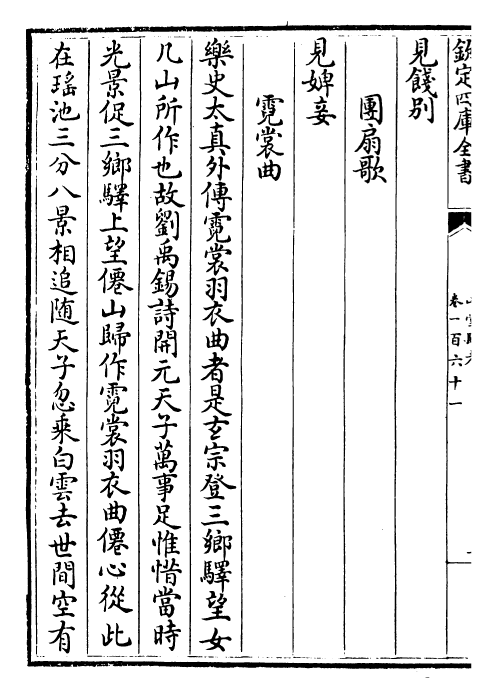 欽定四庫全書
卷一百六十一
見餞別
團扇歌
見婢妾
霓裳曲
樂史太真外傳霓裳羽衣曲者是玄宗登三鄉驛望女
几山所作也故劉禹錫詩開元天子萬事足惟惜當時
光景促三鄉驛上望僊山歸作霓裳羽衣曲僊心從此
在瑶池三分八景相追随天子忽乘白雲去世間空有